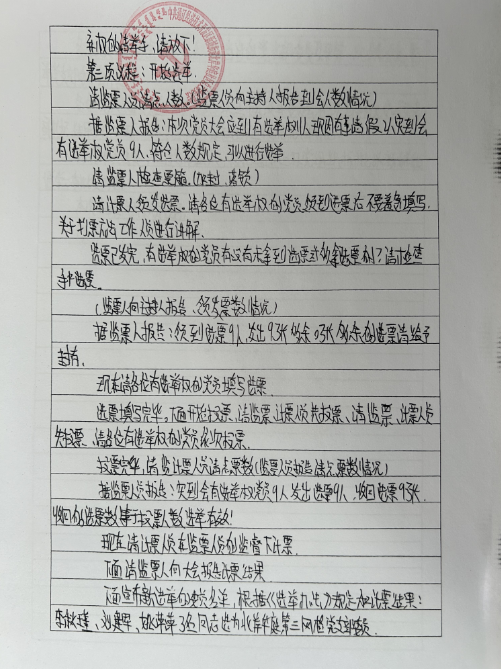 弃权的请举手,请放下!
第三项议程:开始选举.
请监票人员清点人数,(监票人员向主持人报告到会人数情况)
据监票人报告:本次党员大会应到有选举权 人 因事请假2人实到会
有选举权党员9人,符合人数规定,可以进行选举.
请监票人检查票箱。(密封、落锁)
请计票人分发选票。请各位有选举权的党员领到选票后不要着急填写,
关于划票方法工作人员进行讲解.
选票已发完,有选举权的党员有没有未拿到选票或多拿选票的?请检查
手中选票.
(监票人向主持人报告、领发票数情况)
据监票人报告:领到选票9 发出9张 余 张 余的选票请给予
封存.
现在请各位有选举权的党员填写选票.
选票填写完毕,下面开始投票,请监票计票人员先投票、请监票、计票人员
先投票、请各位有选举权的党员依次投票.
投票完毕,请监计票人员清点票数(监票人员报告清点票数情况)
据监票人员报告:实到会有选举权党员9人 发出选票9 收回选票9张.
收回的选票数等于投票人数选举有效!
现在请计票人员在监票人员的监督下计票.
下面请监票人向大会报告计票结果.
下面宣布新选举的委员名单,根据《选举办法》规定和计票结果:
李 、刘 、姚 等3位同志选为 第三网格党支部委员.